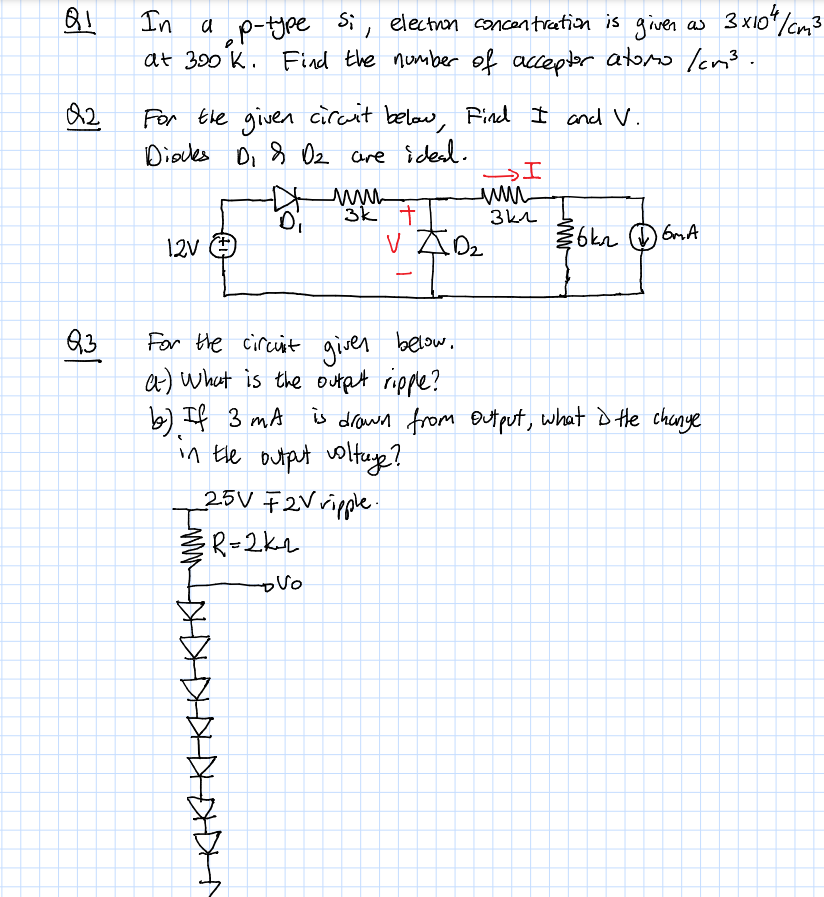 Q1 In a p-type Si, electron concentration is given as 3x10⁴/cm³
at 300°K. Find the number of acceptor atoms /cm³.
Q2 For the given circuit below, Find I and V.
Diodes D₁ & D₂ are ideal.
→I
D₁ 3k + 3kΩ
12V V D₂ 6kΩ 6mA
−
Q3 For the circuit given below.
a-) What is the output ripple?
b) If 3 mA is drawn from output, what is the change
in the output voltage?
25V ∓2V ripple.
R=2kΩ
Vo